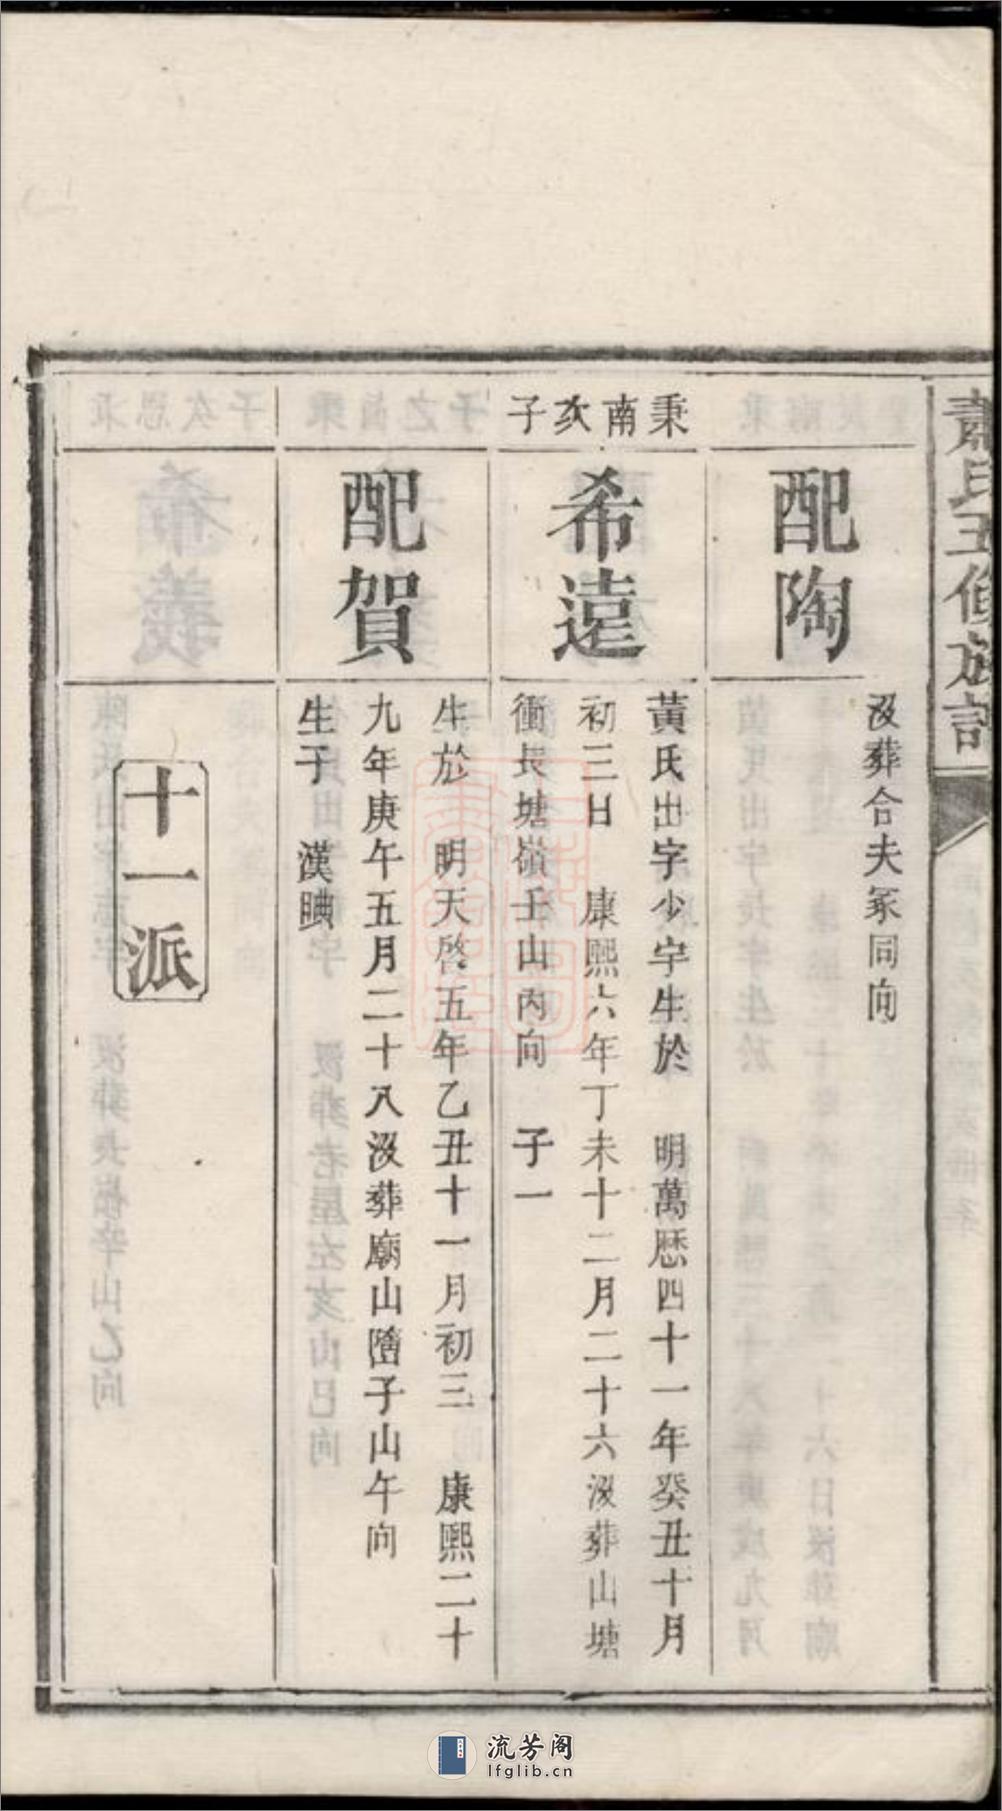 蕭氏五修族譜
配陶
沒葬合夫冢同向
秉南次子
希遠
黃氏出字少宇生於 明萬歷四十一年癸丑十月
初三日 康熙六年丁未十二月二十六沒葬山塘
衝長塘嶺壬山丙向 子一
配賀
生於 明天啓五年乙丑十一月初三 康熙二十
九年庚午五月二十八沒葬廟山 子山午向
生子 漢
十一派
流芳阁
lfglib.cn